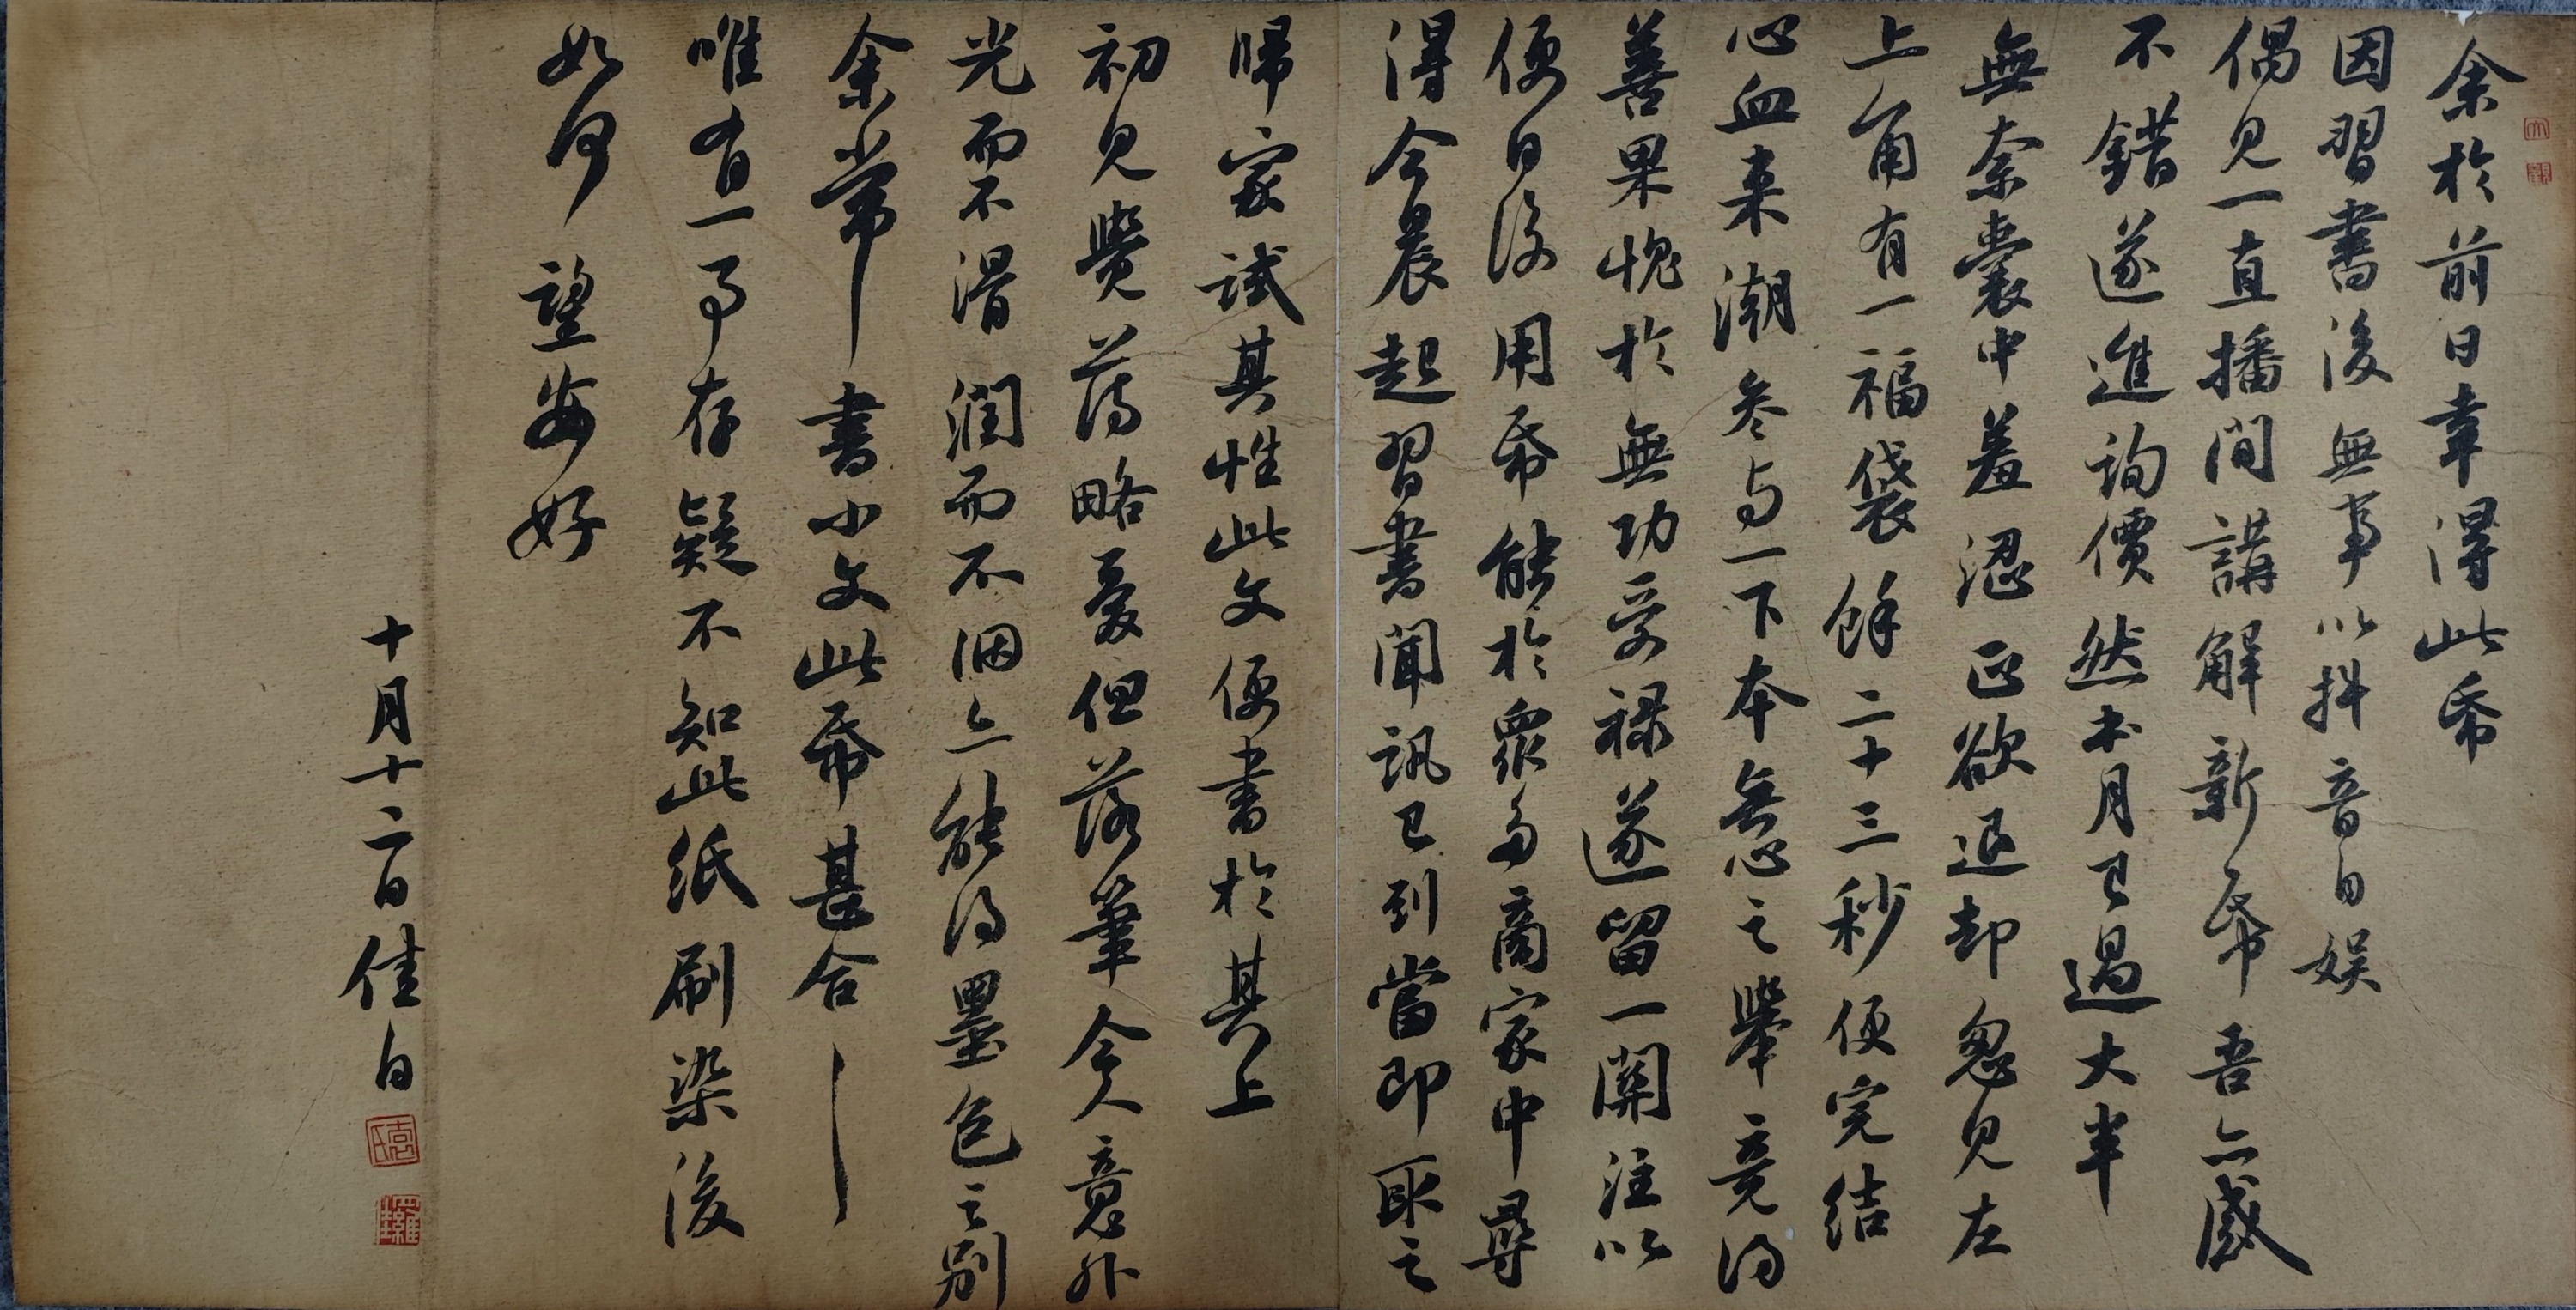 余於前日幸得此帋
因習書後無事以抖音自娱
偶見一直播間講解新帋吾亦感
不錯遂進詢價然本月已過大半
無奈囊中羞澀正欲退却忽見左
上角有一福袋餘二十三秒便完結
心血来潮参与一下本無心之舉竟得
善果愧於無功受禄遂留一關注以
便日後用帋能於眾多商家中尋
得今晨起習書聞訊已到當即取之
歸家試其性此文便書於其上
初見覺薄略憂但落筆令人意外
光而不滑潤而不洇亦能得墨色之別
余常書小文此帋甚合
唯有一事存疑不知此紙刷染後
如何望安好
十月十二日佳白